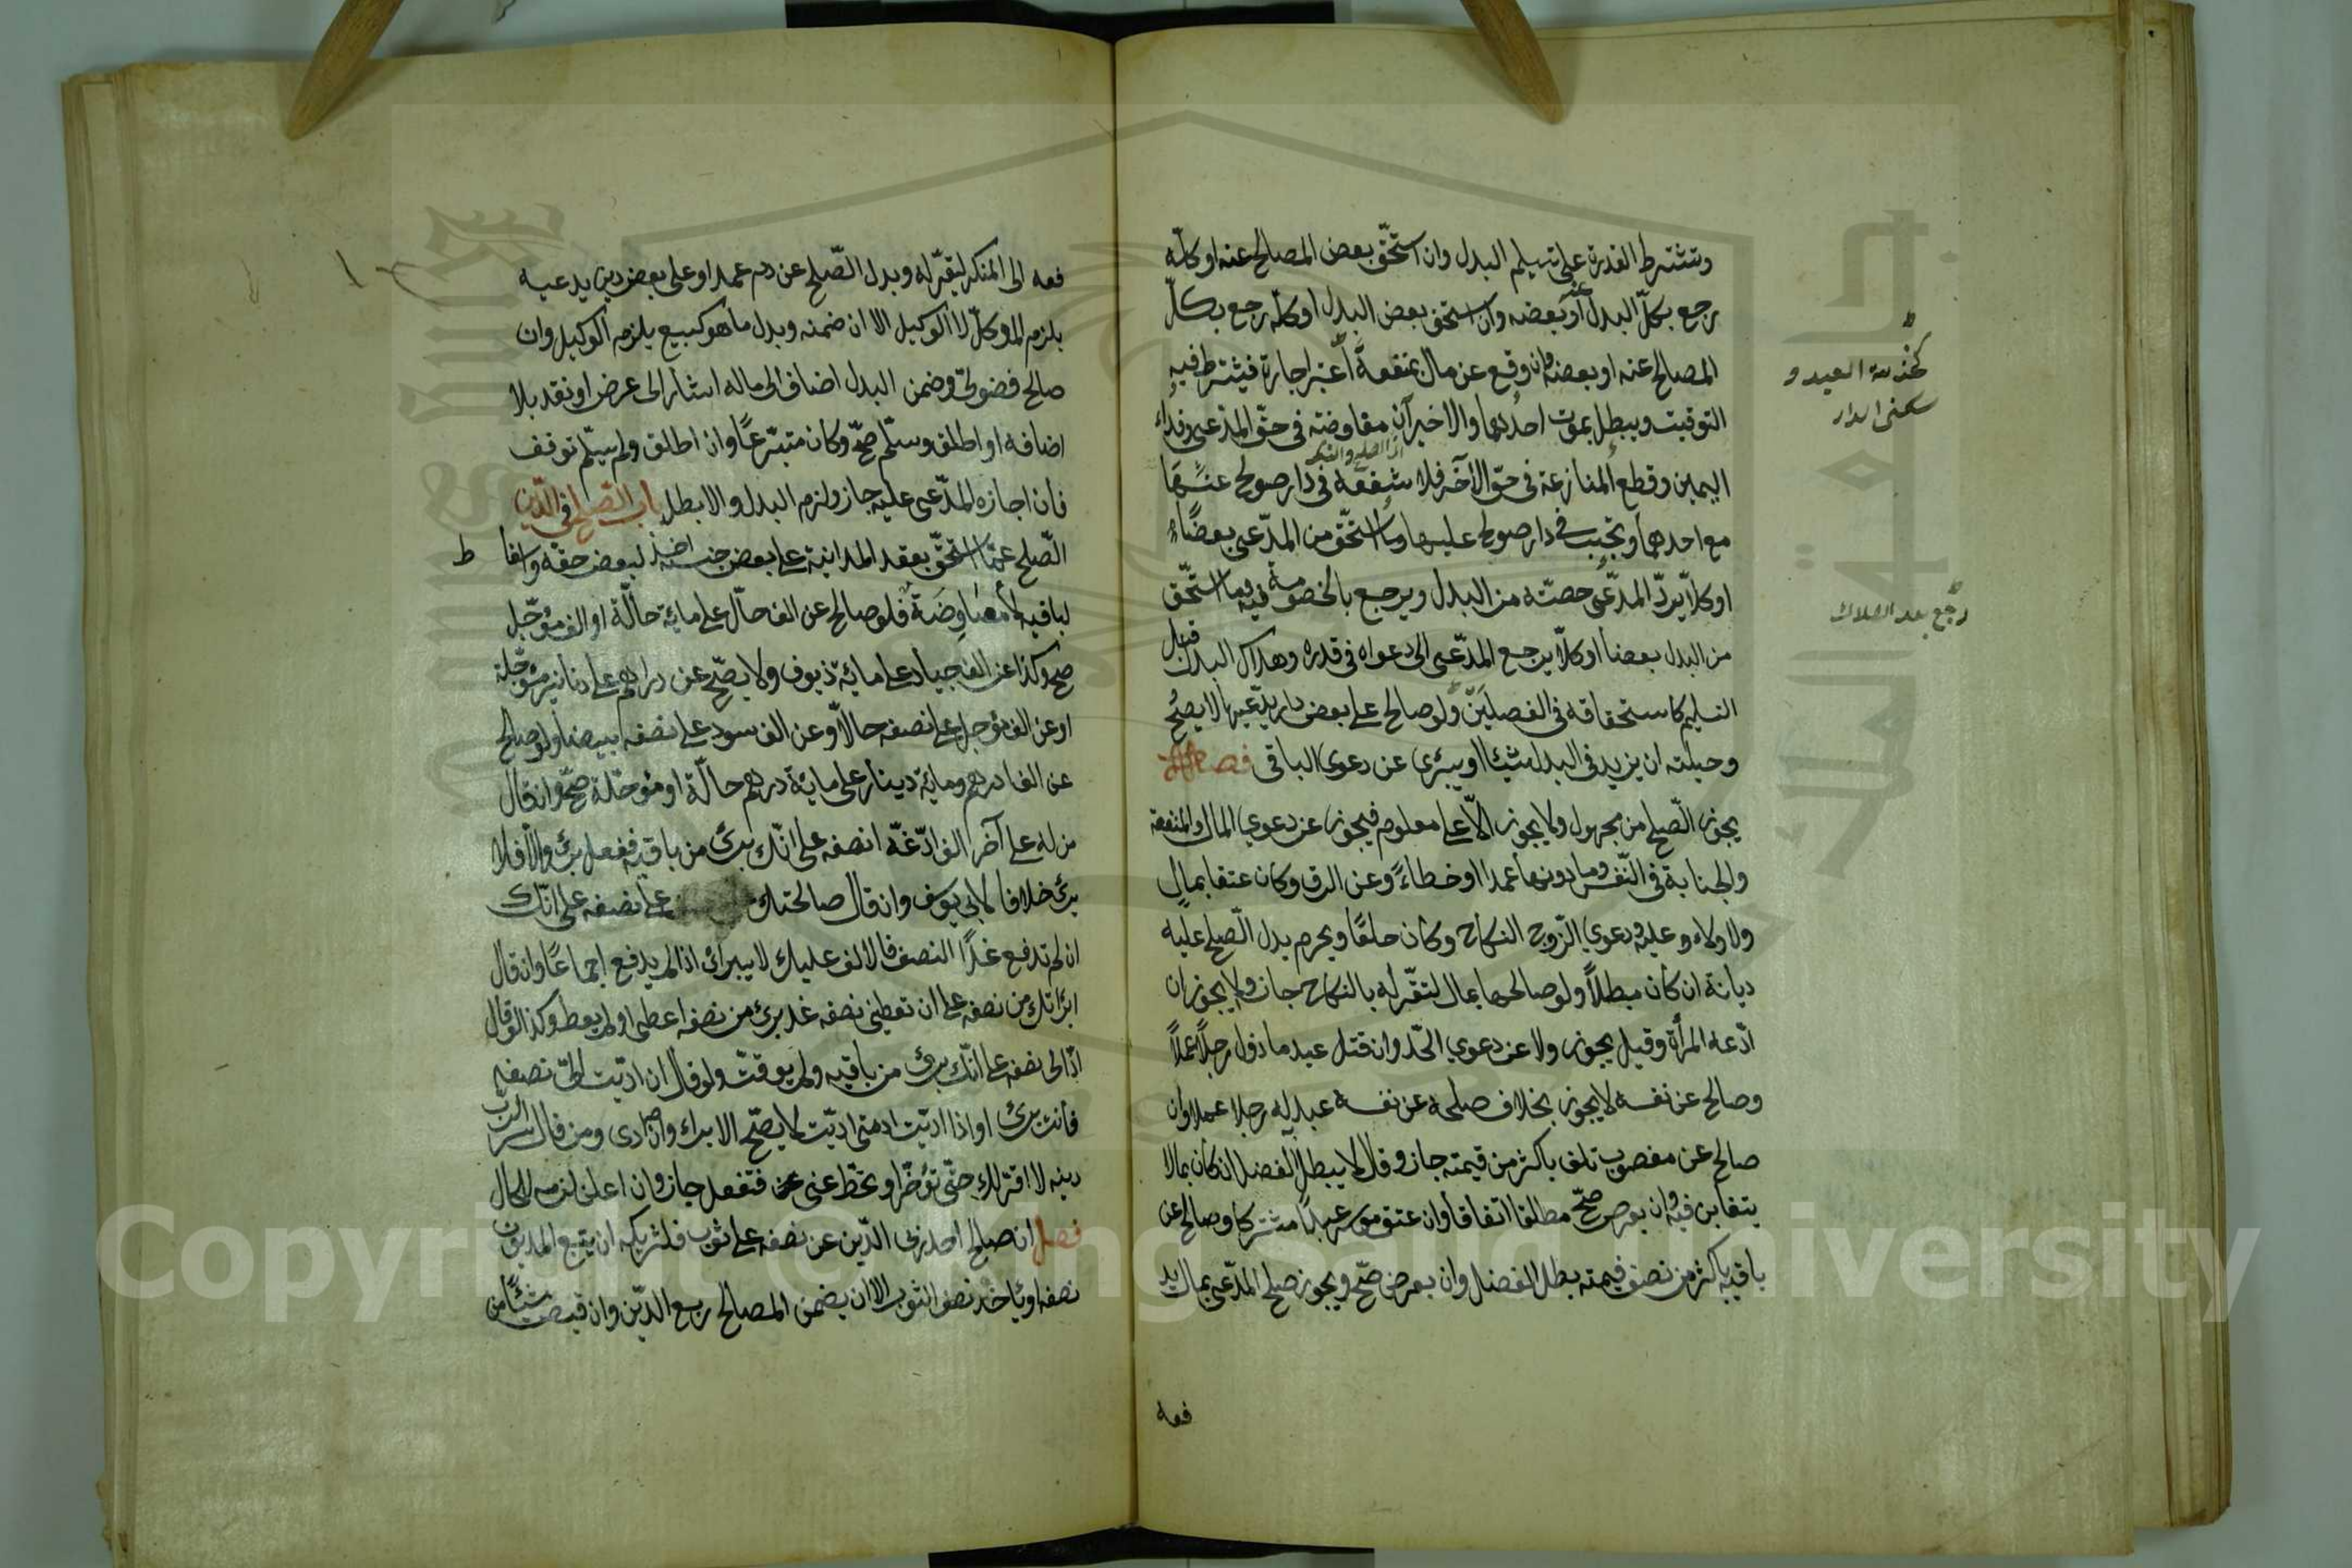 وتشترط القدرة على تسليم البدل وان استحق بعض المصالح عنه او كله
رجع بكل البدل او بعضه وان استحق بعض البدل او كله رجع بكل
المصالح عنه او بعضه وان وقع عن مال بمنفعة اعتبر اجارة فيشترط فيه
التوقيت ويبطل بموت احدهما والاخيرآن معاوضة في حق المدعي وفداء
اليمين وقطع المنازعة في حق الآخر فلا شفعة في دار صولح عنها
مع احدهما وتجب في دار صولح عليها وما استحق من المدعى بعضًا
او كلّا يردّ المدّعى حصته من البدل ويرجع بالخصومة فيه وما استحّق
من البدل بعضا او كلّا يرجع المدّعى الى دعواه في قدره وهلاك البدل قبل
التسليم كاستحقاقه في الفصلين ولو صالح على بعض دار يدّعيها لا يصحّ
وحيلته ان يزيد في البدل شيئا او يبرئ عن دعوي الباقي فصل
يجوز الصّلح من مجهول ولا يجوز الّا على معلوم فيجوز عن دعوي المال والمنفعة
والجناية في النّفس وما دونها عمدا او خطاءً وعن الرق وكان عتقا بمال
ولا ولاء عليه ودعوي الزّوج النكاح وكان خلعًا ويحرم بدل الصّلح عليه
ديانة ان كان مبطلاً ولو صالحها بمال لتقّر له بالنكاح جاز ولا يجوز ان
ادّعه المرأة وقيل يجوز ولا عن دعوي الحّد وان قتل عبد ماذون رجلاً عمدًا
وصالح عن نفسه لا يجوز بخلاف صلحه عن نفسه عبد له رجلا عمدا وان
صالح عن مغصوب تلف باكثر من قيمته جاز وقالا يبطل الفضل ان كان بمالا
يتغابن فيه وان بعرض صحّ مطلقا اتفاقا وان عتق موسر عبدًا مشتركا وصالح عن
باقيه باكثر من نصف قيمته بطل الفضل وان بعرض صحّ ويجوز صلح المدّعى بمال يد
فعه
كخدمة العبد و
سكنى الدار
رجع بعد الهلاك
فعه الى المنكر ليقرّ له وبدل الصّلح عن دم عمد او على بعض دين يدعيه
يلزم الموكّل لا الوكيل الا ان ضمنه وبدل ما هو كبيع يلزم الوكيل وان
صالح فضولىّ وضمن البدل اضاف الى ماله اشار الى عرض او نقد بلا
اضافه او اطلق وسلّم صحّ وكان متبرّعًا وان اطلق ولم يسلّم توقف
فان اجازه المدّعى عليه جاز ولزم البدل والا بطل باب الصّلح في الدّين
الصّلح عمّا استحقّ بعقد المداينة على بعض جنسه اخذ لبعض حقّه واسقاط
لباقيه لا معاوضة فلو صالح عن الف حالّ على مائة حالّة او الف مؤجّل
صحّ وكذا عن الف جياد على مائة زيوف ولا يصحّ عن دراهم على دنانير مؤجّلة
او عن الف مؤجل على نصفه حالاّ او عن الف سود على نصفه بيضا ولو صالح
عن الف درهم ومائة دينار على مائة درهم حالّة او مؤجّلة صحّ وان قال
من له على آخر الف ادّ غدا نصفه على انّك برئ من باقيه ففعل برئ والّا فلا
برئ خلافا لابي يوسف وان قال صالحتك على نصفه على انّك
ان لم تدفع غدًا النصف فالالف عليك لا يبرائ اذا لم يدفع اجماعًا وان قال
ابرأتك من نصفه على ان تعطيني نصفه غد برئ من نصفه اعطى او لم يعط وكذا لو قال
ادّ الى نصفه على انّك برئ من باقيه ولم يوقت ولو قال ان ادّيت الىّ نصفه
فانت برئ او اذا ادّيت او متى ادّيت لا يصحّ الابراء وان ادى ومن قال سر لرب
دينه لا اقر لك حتّى تؤخّر او تحطّ عنى ففعل جاز وان اعلن لزمه للحال
فصل ان صالح احد ربى الدّين عن نصفه على ثوب فلشريكه ان يتبع المديون
نصفه او يأخذ نصف الثوب الا ان يضمن المصالح ربع الدّين وان قبض شيئًا من